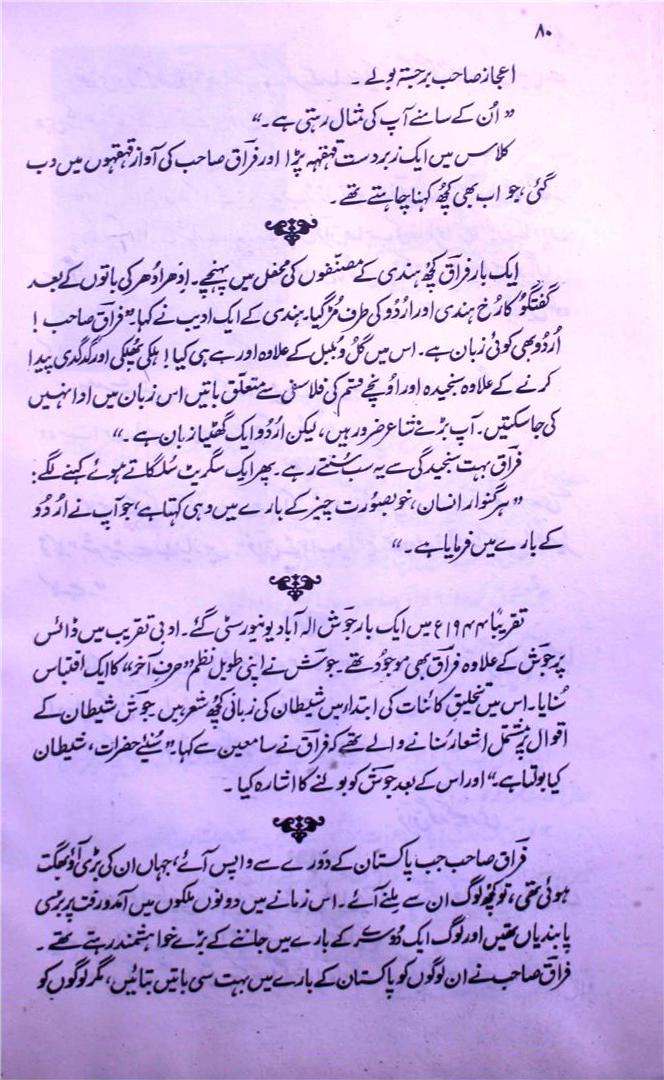 ۸۰
اعجاز صاحب برجستہ بولے ۔
” اُن کے سامنے آپ کی مثال رہتی ہے ۔“
کلاس میں ایک زبردست قہقہہ پڑا اور فراقؔ صاحب کی آواز قہقہوں میں دب
گئی ، جو اب بھی کچھ کہنا چاہتے تھے ۔
ایک بار فراقؔ کچھ ہندی کے مصنّفوں کی محفل میں پہنچے ۔ اِدھر اُدھر کی باتوں کے بعد
گفتگو کا رُخ ہندی اور اردُو کی طرف مُڑ گیا ۔ ہندی کے ایک ادیب نے کہا ۔ ”فراقؔ صاحب !
اُردو بھی کوئی زبان ہے ۔ اس میں گُل و بُلبل کے علاوہ اور ہے ہی کیا ! ہلکی پھُلکی اور گدگدی پیدا
کرنے کے علاوہ سنجیدہ اور اوُنچے قسم کی فلاسفی سے متعلّق باتیں اس زبان میں ادا نہیں
کی جا سکتیں ۔ آپ بڑے شاعر ضرور ہیں ، لیکن اردُو ایک گھٹیا زبان ہے ۔“
فراقؔ بہت سنجیدگی سے یہ سب سُنتے رہے ۔ پھر ایک سگریٹ سُلگاتے ہوئے کہنے لگے :
” ہر گنوار انسان ، خوبصوُرت چیز کے بارے میں وہی کہتا ہے ، جو آپ نے اردُو
کے بارے میں فرمایا ہے ۔“
تقریباً ۱۹۴۴ع میں ایک بار جوشؔ الہ آباد یونیورسٹی گئے ۔ ادبی تقریب میں ڈائس
پر جوشؔ کے علاوہ فراقؔ بھی موجوُد تھے ۔ جوشؔ نے اپنی طویل نظم ”حرفِ آخر“ کا ایک اقتباس
سُنایا ۔ اس میں تخلیقِ کائنات کی ابتدا میں شیطان کی زبانی کچھ شعر ہیں ۔ جوشؔ شیطان کے
اقوال پر مشتمل اشعار سُنانے والے تھے کہ فراقؔ نے سامعین سے کہا ۔ ” سُنیے حضرات ، شیطان
کیا بولتا ہے ۔“ اور اس کے بعد جوشؔ کو بولنے کا اشارہ کیا ۔
فراقؔ صاحب جب پاکستان کے دَورے سے واپس آئے ، جہاں ان کی بڑی آؤ بھگت
ہوئی تھی ، تو کچھ لوگ ان سے ملنے آئے ۔ اس زمانے میں دونوں ملکوں میں آمد و رفت پر بڑی
پابندیاں تھیں اور لوگ ایک دُوسرے کے بارے میں جاننے کے بڑے خواہشمند رہتے تھے ۔
فراقؔ صاحب نے ان لوگوں کو پاکستان کے بارے میں بہت سی باتیں بتائیں ، مگر لوگوں کو